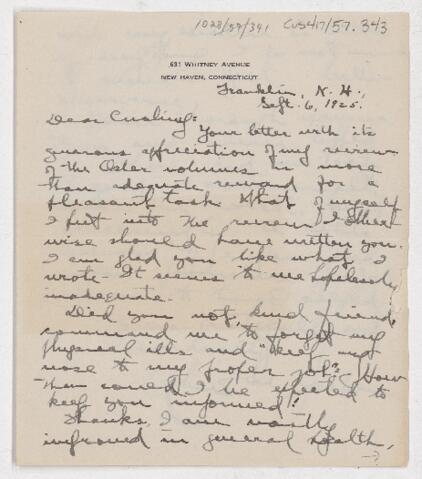 1028/57/341 CUS417/57.343
631 WHITNEY AVENUE
NEW HAVEN, CONNECTICUT
Franklin, N. H.,
Sept. 6, 1925.
Dear Cushing:
Your letter with its
generous appreciation of my review
of the Osler volumes is more
than adequate reward for a
pleasant task. What of myself
I put into the review I other-
wise should have written you.
I am glad you like what I
wrote. It seems to me hopelessly
inadequate.
Did you not, kind friend,
command me to forget my
physical ills and "keep my
nose to my proper job"? How
then could I be expected to
keep you informed!
Thanks, I am vastly
improved in general health,